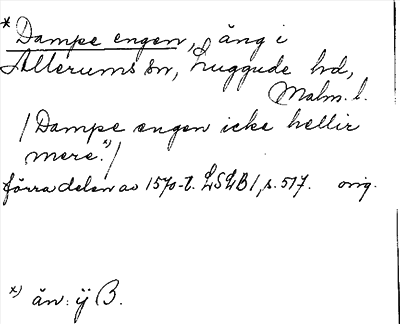 * Dampe engen, äng i
Allerums sn, Luggude hd,
Malm. l.
/Dampe engen icke hellir
mere.*)/
förra delen av 1570-t. LSLB 1, s. 517. orig.
*) än: ÿ B.